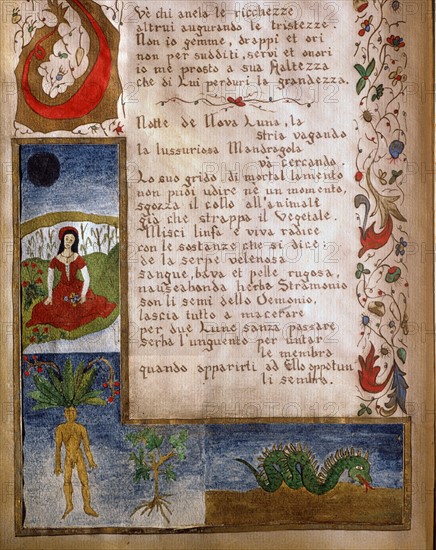 Ve chi anela le ricchezze
altrui augurando le tristezze.
Non io gemme, drappi et ori
non per sudditi, servi et onori
io mè prosto a sua Altezza
che di Lui perduri la grandezza.
Notte de Nova Luna, la
stria vagando
la lussuriosa Mandragola
và cercando.
Lo suo grido di mortal lamento
non puoi udire nè un momento,
sgozza il collo all'animale
già che strappa il Vegetale.
Misci linfa e viva radice
con le sostanze che si dice:
de la serpe velenosa
sangue, bava et pelle rugosa,
nauseabonda herba Stramonio
son li semi dello Demonio,
lascia tutto a macerare
per due Lune sanza passare
serba l'unguento per untar
le membra
quando apparirti ad Ello opportun
li sembra.
PHOTO12